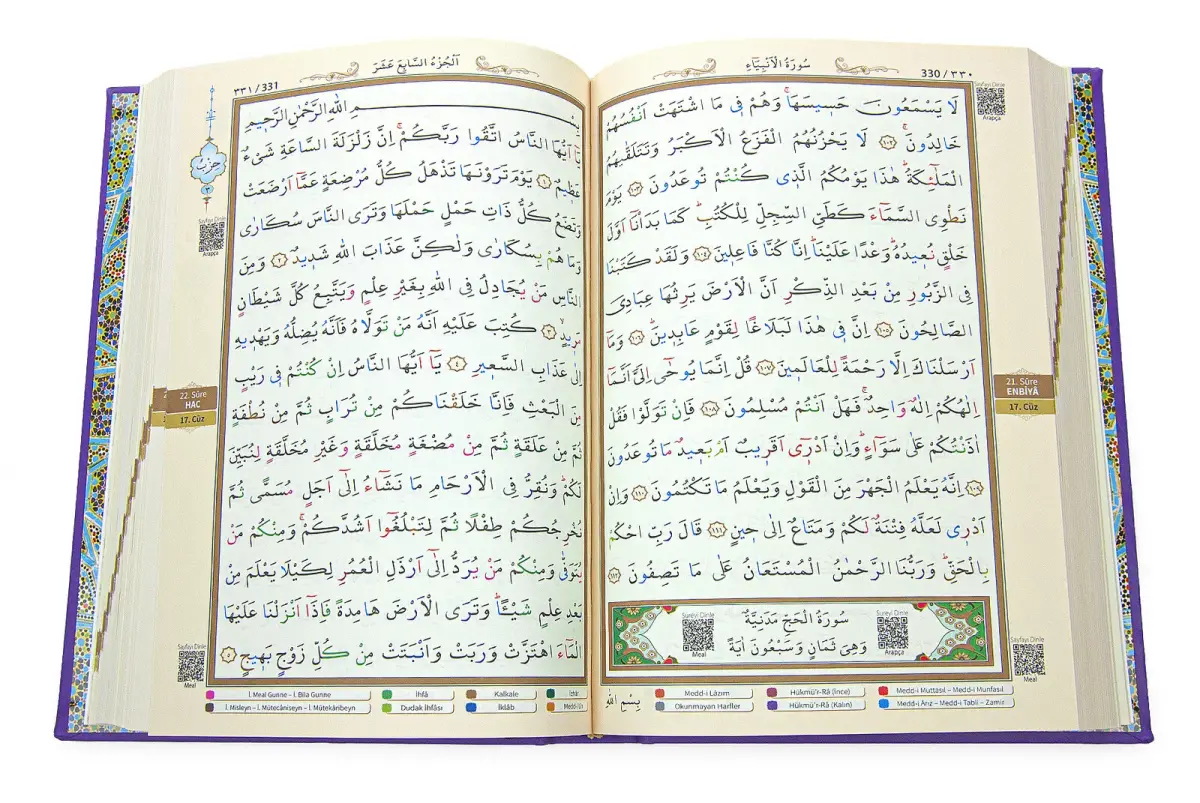 330 / ٣٣٠
سُورَةُ الْاَنْبِيَاءِ
لَا يَسْمَعُونَ حَسِيسَهَاۚ وَهُمْ فٖى مَا اشْتَهَتْ اَنْفُسُهُمْ
خَالِدُونَۚ ﴿١٠٢﴾ لَا يَحْزُنُهُمُ الْفَزَعُ الْاَكْبَرُ وَتَتَلَقّٰيهُمُ
الْمَلٰٓئِكَةُۜ هٰذَا يَوْمُكُمُ الَّذٖى كُنْتُمْ تُوعَدُونَ ﴿١٠٣﴾ يَوْمَ
نَطْوِى السَّمَٓاءَ كَطَىِّ السِّجِلِّ لِلْكُتُبِۜ كَمَا بَدَأْنَٓا اَوَّلَ
خَلْقٍ نُعٖيدُهُۜ وَعْدًا عَلَيْنَاۜ اِنَّا كُنَّا فَاعِلٖينَ ﴿١٠٤﴾ وَلَقَدْ كَتَبْنَا
فِى الزَّبُورِ مِنْ بَعْدِ الذِّكْرِ اَنَّ الْاَرْضَ يَرِثُهَا عِبَادِىَ
الصَّالِحُونَ ﴿١٠٥﴾ اِنَّ فٖى هٰذَا لَبَلَاغًا لِقَوْمٍ عَابِدٖينَۜ ﴿١٠٦﴾ وَمَٓا
اَرْسَلْنَاكَ اِلَّا رَحْمَةً لِلْعَالَمٖينَ ﴿١٠٧﴾ قُلْ اِنَّمَا يُوحٰٓى اِلَىَّ اَنَّمَٓا
اِلٰهُكُمْ اِلٰهٌ وَاحِدٌۚ فَهَلْ اَنْتُمْ مُسْلِمُونَ ﴿١٠٨﴾ فَاِنْ تَوَلَّوْا فَقُلْ
اٰذَنْتُكُمْ عَلٰى سَوَٓاءٍۜ وَاِنْ اَدْرٖٓى اَقَرٖيبٌ اَمْ بَعٖيدٌ مَا تُوعَدُونَ
﴿١٠٩﴾ اِنَّهُ يَعْلَمُ الْجَهْرَ مِنَ الْقَوْلِ وَيَعْلَمُ مَا تَكْتُمُونَ ﴿١١٠﴾ وَاِنْ
اَدْرٖى لَعَلَّهُ فِتْنَةٌ لَكُمْ وَمَتَاعٌ اِلٰى حٖينٍ ﴿١١١﴾ قَالَ رَبِّ احْكُمْ
بِالْحَقِّۜ وَرَبُّنَا الرَّحْمٰنُ الْمُسْتَعَانُ عَلٰى مَا تَصِفُونَ ﴿١١٢﴾
سُورَةُ الْحَجِّ مَدَنِيَّةٌ
وَهِىَ ثَمَانٍ وَسَبْعُونَ اٰيَةً
Sureyi Dinle
Arapça
Sureyi Dinle
Meal
Sayfayı Dinle
Arapça
21. Sûre
ENBİYÂ
17. Cüz
Sayfayı Dinle
Meal
بِسْمِ اللهِ
Medd-i Lâzım
Hükmü'r-Râ (İnce)
Medd-i Muttasıl – Medd-i Munfasıl
Okunmayan Harfler
Hükmü'r-Râ (Kalın)
Medd-i Ârız – Medd-i Tabîî – Zamir
٣٣١ / 331
اَلْجُزْءُ السَّابِعَ عَشَرَ
بِسْمِ اللهِ الرَّحْمٰنِ الرَّحٖيمِ
يَٓا اَيُّهَا النَّاسُ اتَّقُوا رَبَّكُمْۚ اِنَّ زَلْزَلَةَ السَّاعَةِ شَىْءٌ
عَظٖيمٌ ﴿١﴾ يَوْمَ تَرَوْنَهَا تَذْهَلُ كُلُّ مُرْضِعَةٍ عَمَّٓا اَرْضَعَتْ
وَتَضَعُ كُلُّ ذَاتِ حَمْلٍ حَمْلَهَا وَتَرَى النَّاسَ سُكَارٰى
وَمَا هُمْ بِسُكَارٰى وَلٰكِنَّ عَذَابَ اللهِ شَدٖيدٌ ﴿٢﴾ وَمِنَ
النَّاسِ مَنْ يُجَادِلُ فِى اللهِ بِغَيْرِ عِلْمٍ وَيَتَّبِعُ كُلَّ شَيْطَانٍ
مَرٖيدٍۙ ﴿٣﴾ كُتِبَ عَلَيْهِ اَنَّهُ مَنْ تَوَلَّاهُ فَاَنَّهُ يُضِلُّهُ وَيَهْدٖيهِ
اِلٰى عَذَابِ السَّعٖيرِ ﴿٤﴾ يَٓا اَيُّهَا النَّاسُ اِنْ كُنْتُمْ فٖى رَيْبٍ
مِنَ الْبَعْثِ فَاِنَّا خَلَقْنَاكُمْ مِنْ تُرَابٍ ثُمَّ مِنْ نُطْفَةٍ
ثُمَّ مِنْ عَلَقَةٍ ثُمَّ مِنْ مُضْغَةٍ مُخَلَّقَةٍ وَغَيْرِ مُخَلَّقَةٍ لِنُبَيِّنَ
لَكُمْۜ وَنُقِرُّ فِى الْاَرْحَامِ مَا نَشَٓاءُ اِلٰٓى اَجَلٍ مُسَمًّى ثُمَّ
نُخْرِجُكُمْ طِفْلًا ثُمَّ لِتَبْلُغُٓوا اَشُدَّكُمْۚ وَمِنْكُمْ مَنْ
يُتَوَفّٰى وَمِنْكُمْ مَنْ يُرَدُّ اِلٰٓى اَرْذَلِ الْعُمُرِ لِكَيْلَا يَعْلَمَ مِنْ
بَعْدِ عِلْمٍ شَيْـًٔاۜ وَتَرَى الْاَرْضَ هَامِدَةً فَاِذَٓا اَنْزَلْنَا عَلَيْهَا
الْمَٓاءَ اهْتَزَّتْ وَرَبَتْ وَاَنْبَتَتْ مِنْ كُلِّ زَوْجٍ بَهٖيجٍ ﴿٥﴾
حِزْبٌ
٢
Sayfayı Dinle
Arapça
22. Sûre
HAC
17. Cüz
Sayfayı Dinle
Meal
İ. Meal Gunne – İ. Bila Gunne
İhfâ
Kalkale
İzhâr
İ. Misleyn – İ. Mütecâniseyn – İ. Mütekâribeyn
Dudak İhfâsı
İklâb